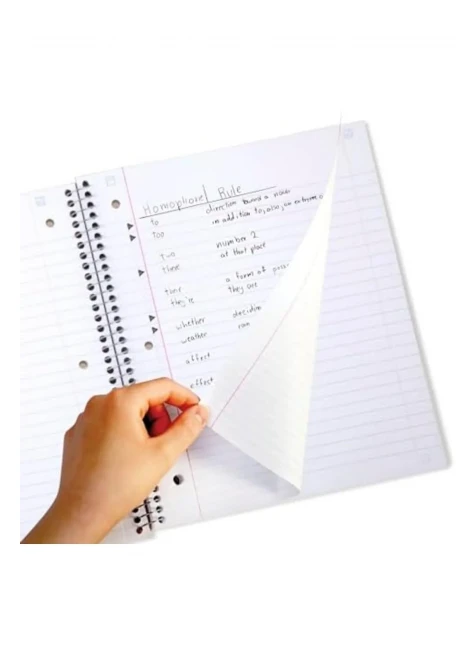 Homophones Rule
to direction toward a noun
too in addition to, also,
two number 2
there at that place
their a form of
they're they are
whether
weather
affect
effect